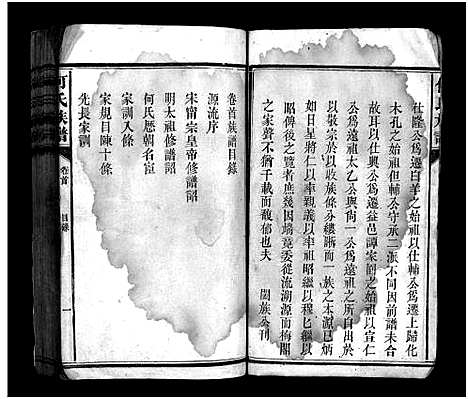 仕隆公爲遷白羊之始祖以仕輔公爲遷上歸化
木孔之始祖但輔公守承二派不同因前譜未合
故以仕興公爲遷益邑譚家園之始祖以宣仁
公爲遠祖太乙公尙一公爲遠祖之所自出於
以敬宗於以收族縷斯而一族之本源已炳
如日星將仁以率親義以率祖昭繼以穆匕繼以
昭俾後之覽者庶幾因端竟委從流溯源而梅閣
之家聲不猶千載而馥郁也夫
闔族公刊
卷首族譜目錄
源流序
宋甯宗皇帝修譜詔
明太祖修譜詔
何氏歷朝名宦
家訓八條
家規目陳十條
先長家訓
何氏族譜
卷首
目錄
一